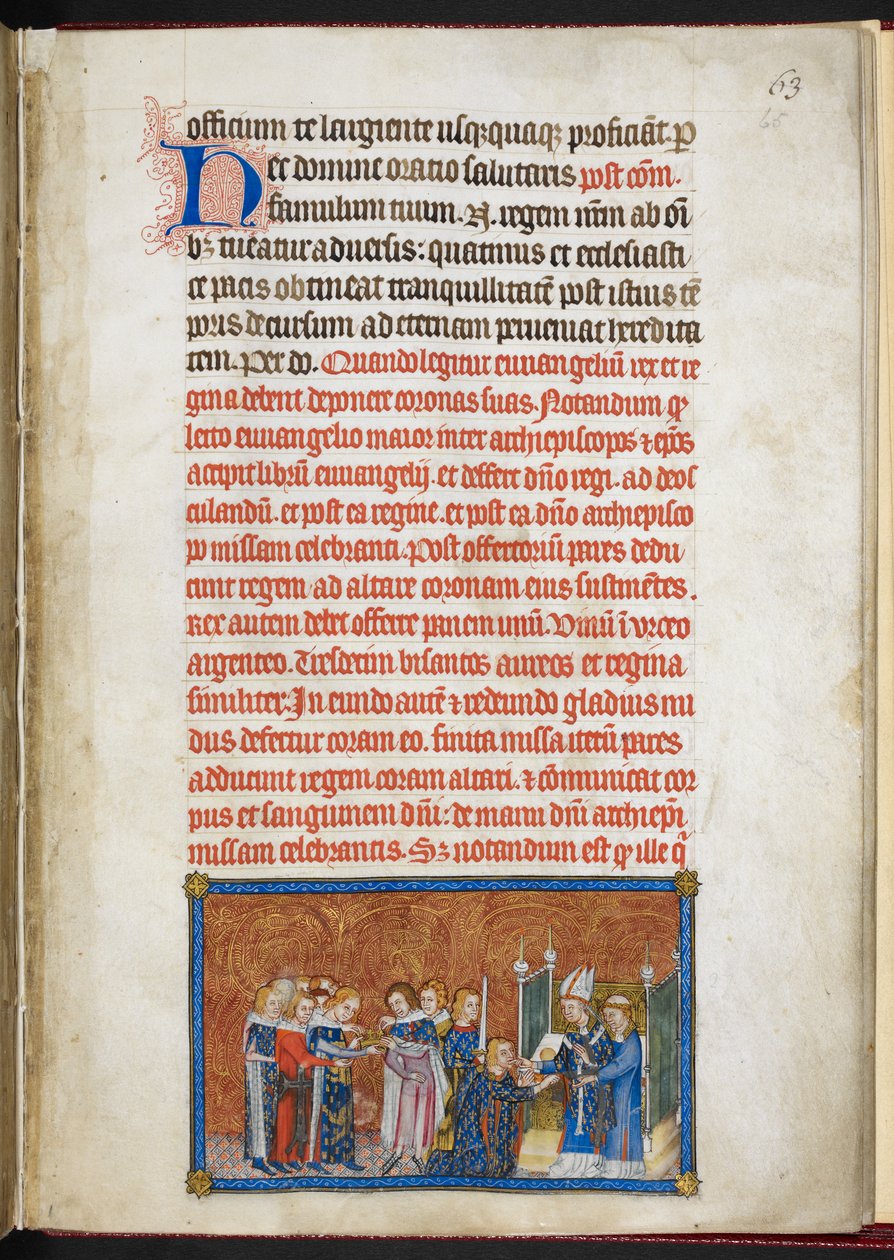 63
65
officium te largiente usq;quaq; proficiāt. P
Hec domine oratio salutaris post cōm.
famulum tuum. N. regem nr̄m ab oī
bꝫ tueatur aduersis: quatinus et ecclesiasti
ce pacis obtineat tranquillitatē post istius tē
poris decursum ad eternam perueniat heredita
tem. Per do. Quando legitur euuangeliū rex et re
gina debent deponere coronas suas. Notandum ꝙ
lecto euuangelio maior inter archiepiscopos ⁊ ep̄os
accipit librū euuangelij. et deffert dn̄o regi. ad deos
culandū. et post ea regine. et post ea dn̄o archiepisco
po missam celebranti. Post offertoriū pares dedu
cunt regem ad altare coronam eius sustinētes.
Rex autem debet offerre panem unū. Vinū ī vrceo
argenteo. Tresdecim bisantos aureos et regina
similiter. In eundo autē ⁊ redeundo gladius nu
dus defertur coram eo. finita missa iterū pares
adducunt regem coram altari. ⁊ cōmunicat cor
pus et sanguinem dn̄i: de manu dn̄i archiep̄i
missam celebrantis. Sꝫ notandum est ꝙ ille q̄